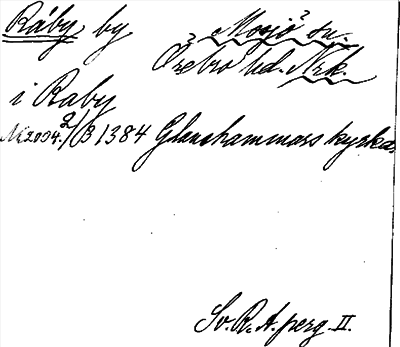 Råby by Mosjö sn.
Örebro hd. Nrk.
i Raby
2/8 1384 Glanshammars kyrka
Sv. R. A. perg. II.